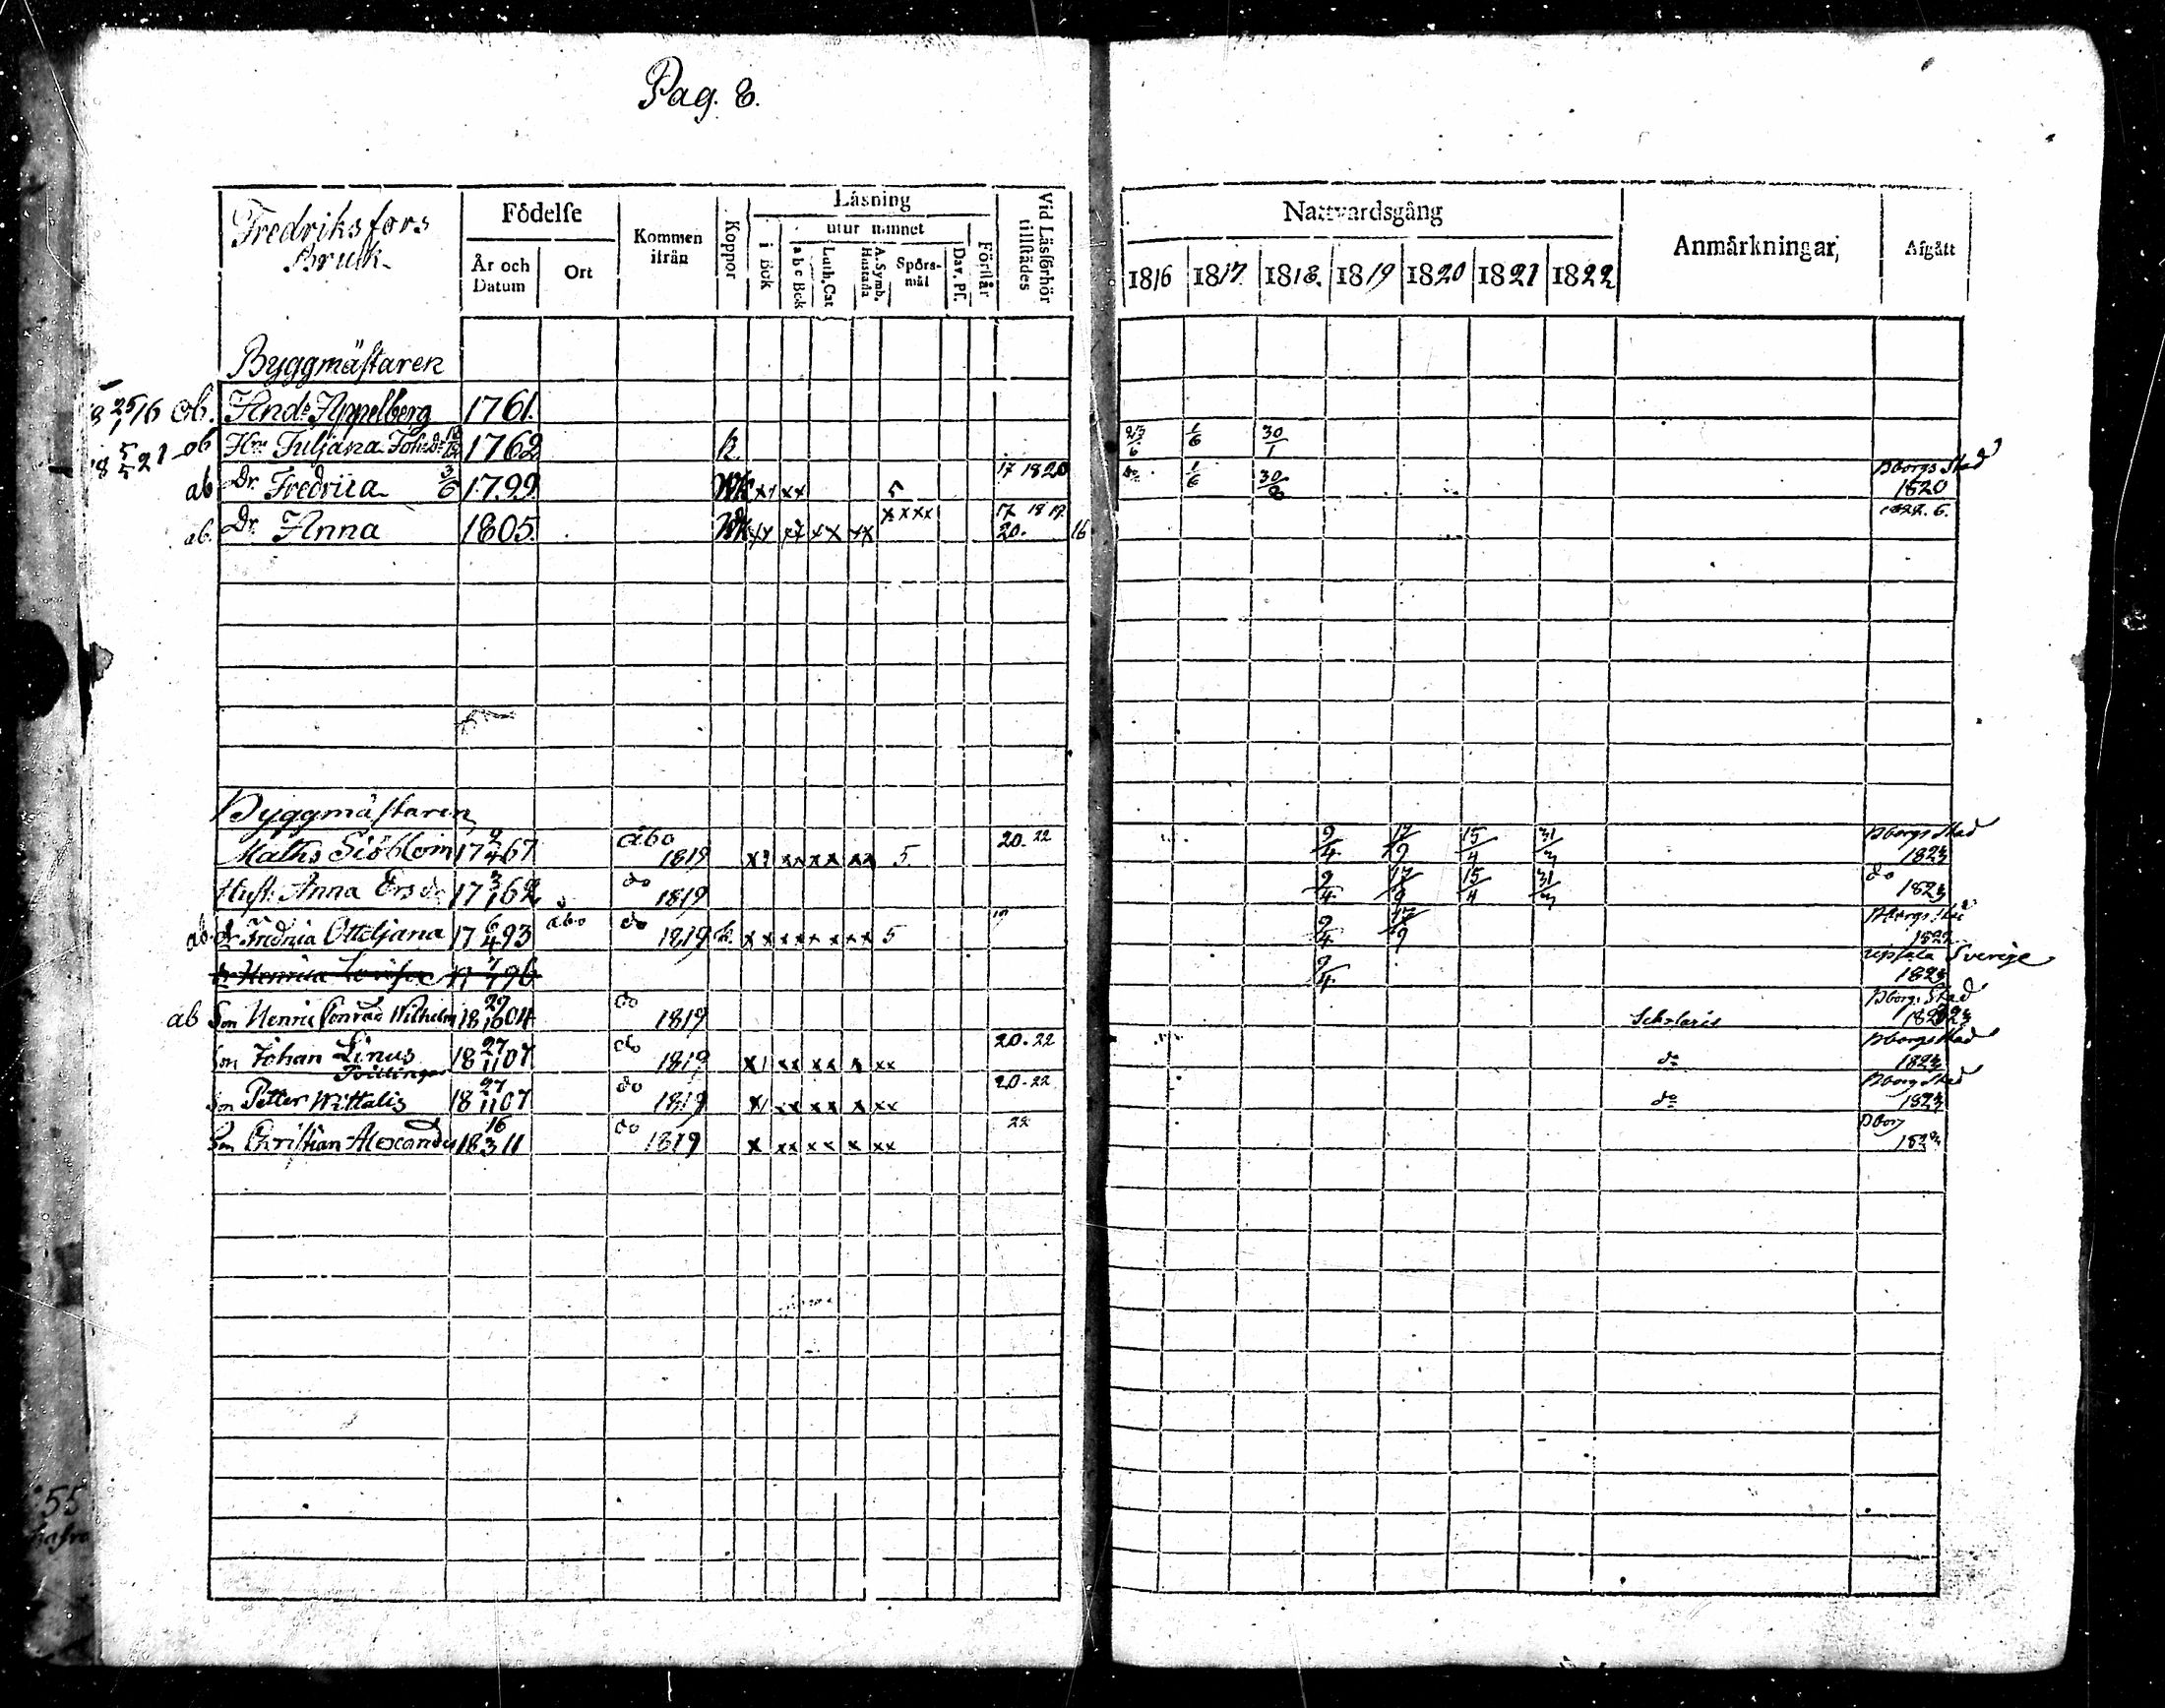 Pag. 8.
Fredriksfors Bruk
Födelse
År och Datum
Ort
Kommen ifrån
Koppor
Läsning
i Bok
utur minnet
a b c Bok
Luth. Cat
A. Symb. Hustafla
Spörs-mål
Dav. Ps.
Förstår
Vid Läsförhör tillstädes
Nattvardsgång
1816 1817 1818. 1819 1820 1821 1822
Anmärkningar
Afgått
Byggmästaren
18 25/1 16 ob. And: Appelberg 1761.
18 5/5 21 ob Hu Juljana Joh:Dr 1762 k 23/6 1/6 30/1
ab Dr. Fredrica 3/6 1799 xx xx 5 17 18 20 do 1/6 30/8 Bborgs Stad 1820
ab. Dr. Anna 1805. xx xx xx xx xxxx 17 18 19 20. 16 1822. 6.
Byggmästaren
Maths Siöblom 17 2/4 67 Åbo 1819 xx xx xx 5. 20. 22 9/4 17/9 15/4 31/3 Bborgs Stad 1823
Hust. Anna Ersdr 17 3/1 62 do 1819 9/4 17/9 15/4 31/3 do 1823
ab. dr Fredrica Otteljana 17 6/4 93 åbo do 1819 k. xx xx xx xx 5 9/4 17/9 Bborgs Stad 1822
dr Henrica Lovisa 17 7/7 96 9/4 Upsala Sverige 1823
ab Son Henric Conrad Wilhelm 18 29/10 04 do 1819 Scholaris Bborgs Stad 1823
Son Johan Linus 18 27/11 07 do 1819 xx xx x xx 20. 22 do Bborgs Stad 1823
Tvillingar
Son Petter Wittalis 18 27/11 07 do 1819 xx xx x xx 20-22 do Bborg Stad 1823
Son Christian Alexander 18 16/3 11 do 1819 x xx xx x xx 22 Bborg 1823
55